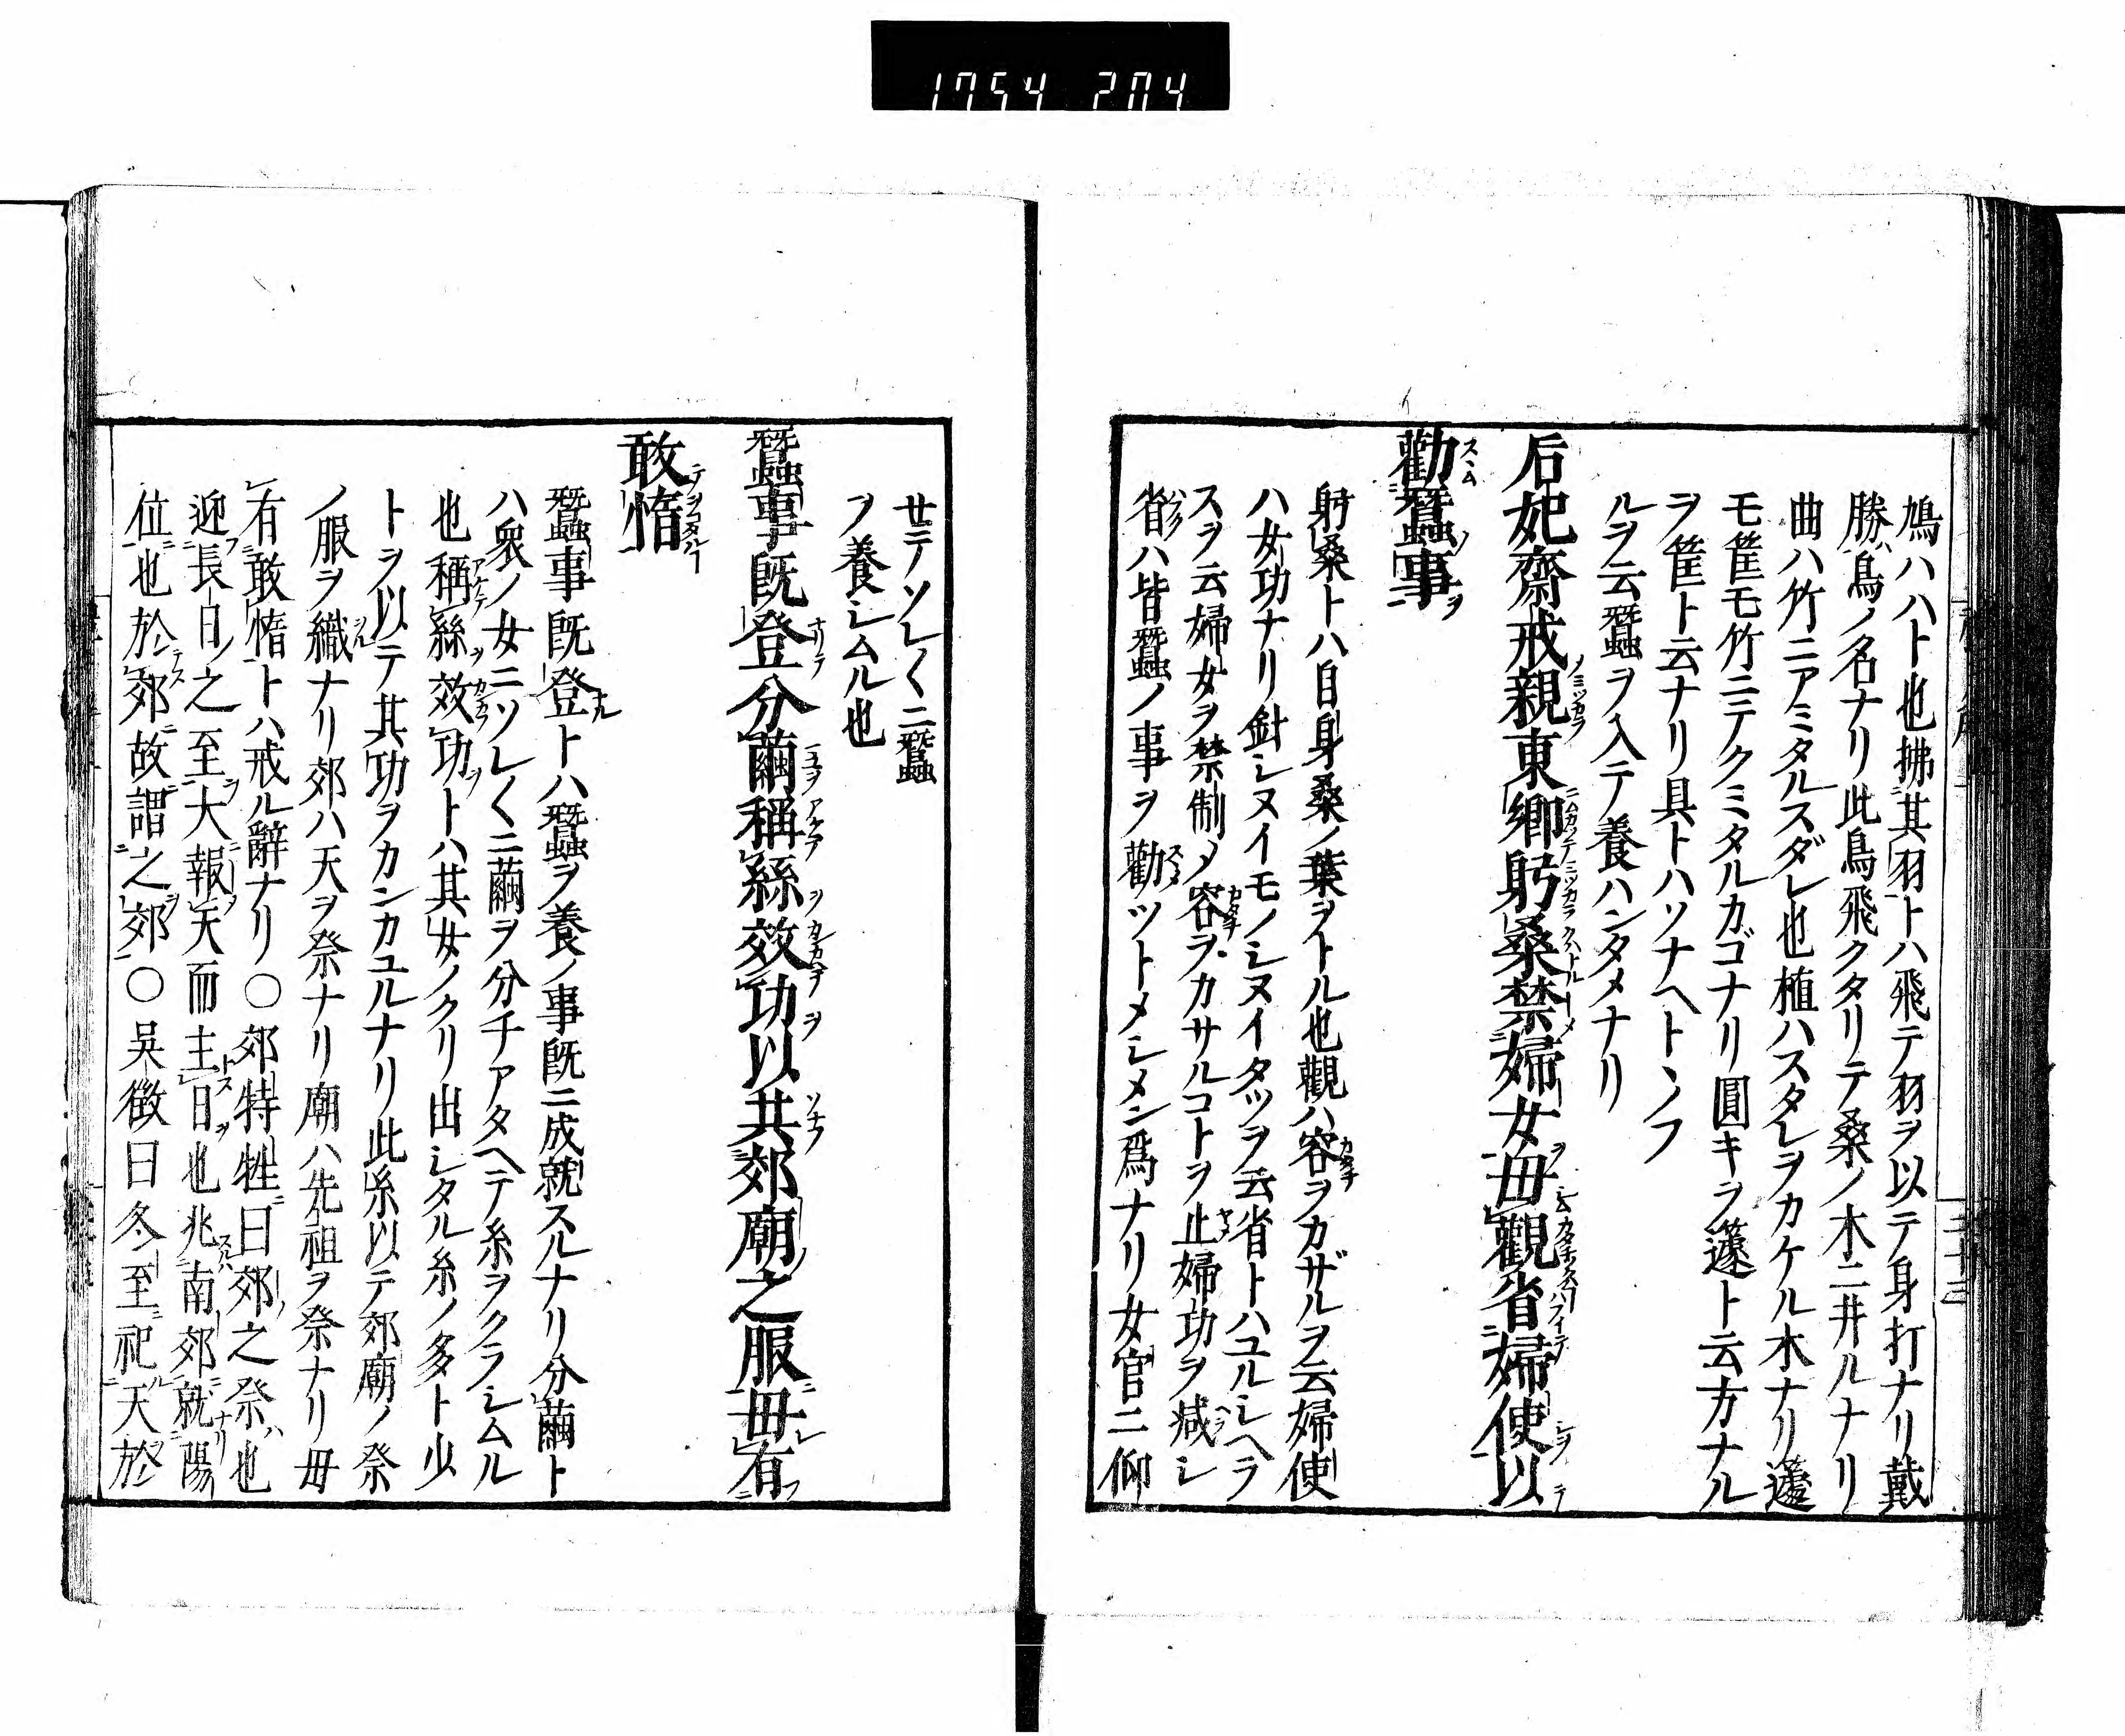 1754 204
鳩ハハト也拂其羽トハ飛テ羽ヲ以テ身打ナリ戴
勝ハ鳥ノ名ナリ此鳥飛クタリテ桑ノ木ニ井ルナリ
曲ハ竹ニアミタルスダレ也植ハスタレヲカケル木ナリ籧
モ筐モ竹ニテクミタルカゴナリ圓キヲ籧ト云方ナル
ヲ筐ト云ナリ具トハソナヘトヽノフ
ルヲ云蠶ヲ入テ養ハンタメナリ
后妃齋戒親東鄉躬桑禁婦女毋觀省婦使以
勸蠶事
躬桑トハ自身桑ノ葉ヲトル也觀ハ容ヲカザルヲ云婦使
ハ女功ナリ針シヌイモノシヌイタツヲ云省トハユルシヘラ
スヲ云婦女ヲ禁制メ容ヲカサルコトヲ止婦功ヲ减シ
省ハ皆蠶ノ事ヲ勸ツトメシメン爲ナリ女官ニ仰
せテソレ〱ニ蠶
ヲ養シムル也
蠶事既登分繭稱絲效功以共郊廟之服毋有
敢惰
蠶事既登トハ蠶ヲ養ノ事既ニ成就スルナリ分繭ト
ハ衆ノ女ニソレ〱ニ繭ヲ分チアタヘテ糸ヲクラシムル
也稱絲效功トハ其女ノクリ出シタル糸ノ多ト少
トヲ以テ其功ヲカンカユルナリ此糸以テ郊廟ノ祭
ノ服ヲ織ナリ郊ハ天ヲ祭ナリ廟ハ先祖ヲ祭ナリ毋
有敢惰トハ戒ル辭ナリ○郊特牲曰郊之祭也
迎長日之至大報天而主日也兆南郊就陽
位也於郊故謂之郊○吳徵曰冬至祀天於